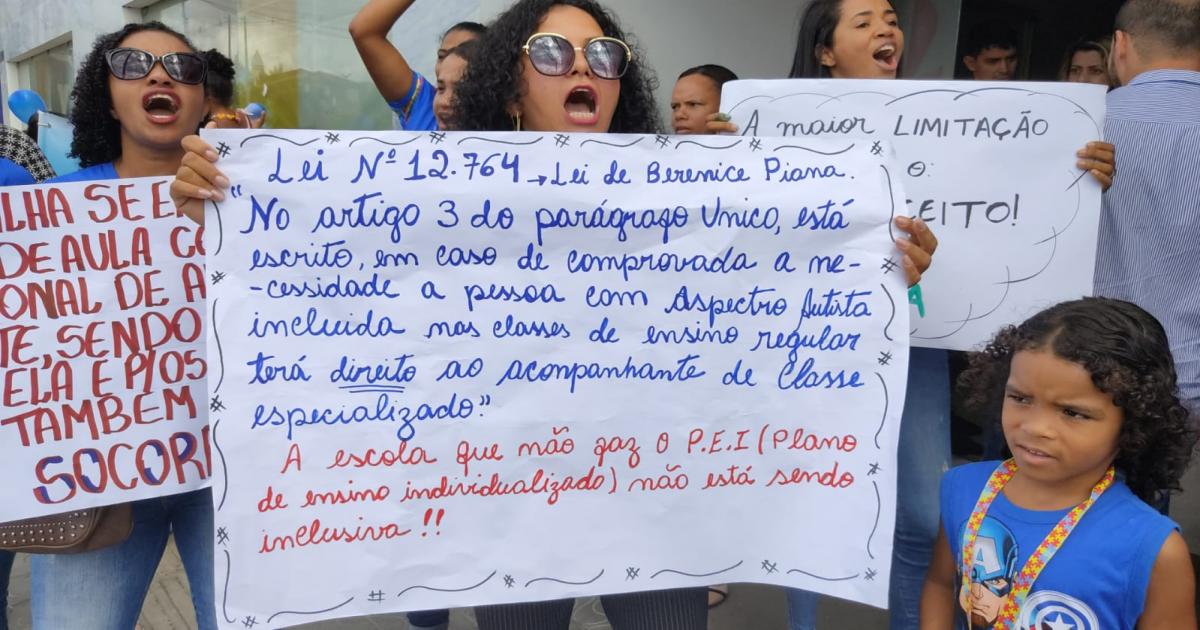 ILHA SE E
DE AULA CO
ONAL DE A
TE, SENDO
ELA E P/OS
TAMBEM
SOCOR
Lei Nº 12.764 → Lei de Berenice Piana.
"No artigo 3 do parágrafo Unico, está
escrito, em caso de comprovada a ne-
-cessidade a pessoa com Aspectro Autista
incluida nas classes de ensino regular
terá direito ao acompanhante de Classe
especializado."
A escola que não faz o P.E.I (Plano
de ensino individualizado) não está sendo
inclusiva !!
A maior LIMITAÇÃO
é:
CEITO!
A